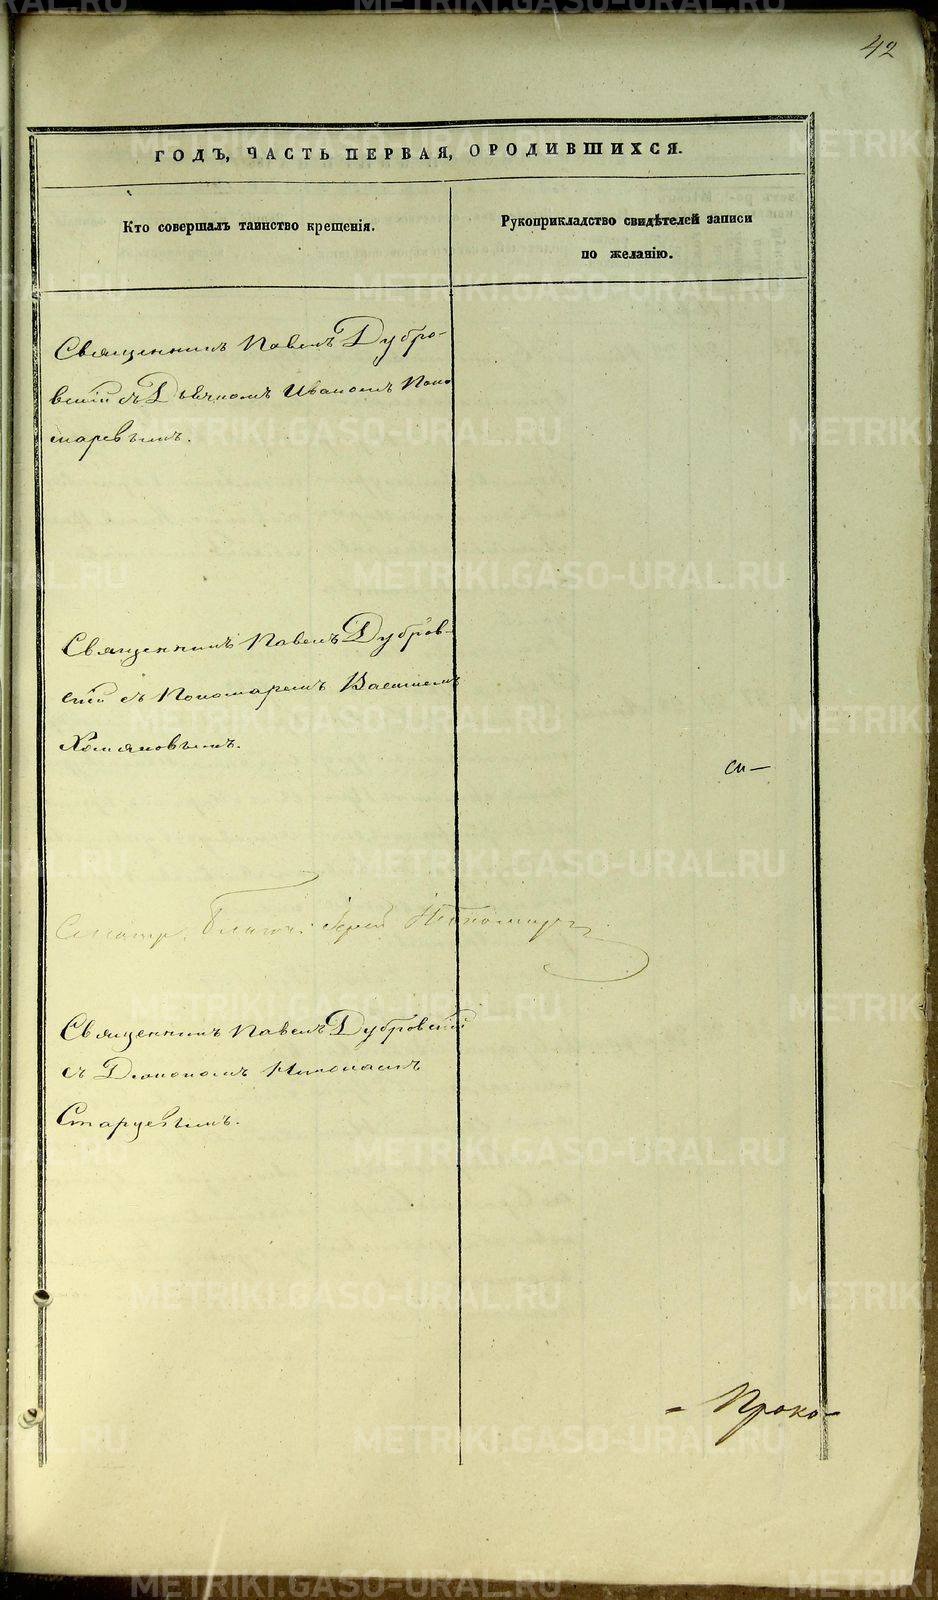 42
ГОДЪ, ЧАСТЬ ПЕРВАЯ, ОРОДИВШИХСЯ.
Кто совершалъ таинство крещенія.
Рукоприкладство свидѣтелей записи
по желанію.
Священникъ Павелъ Дубро-
вскій съ Дьячкомъ Иваномъ Поно
маревымъ.
Священникъ Павелъ Дубров-
скій съ Пономаремъ Василіемъ
Хомяковымъ.
си-
Священникъ Павелъ Дубровскій
съ Діакономъ Николаемъ
Старцевымъ.
- Проко-
METRIKI.GASO-URAL.RU